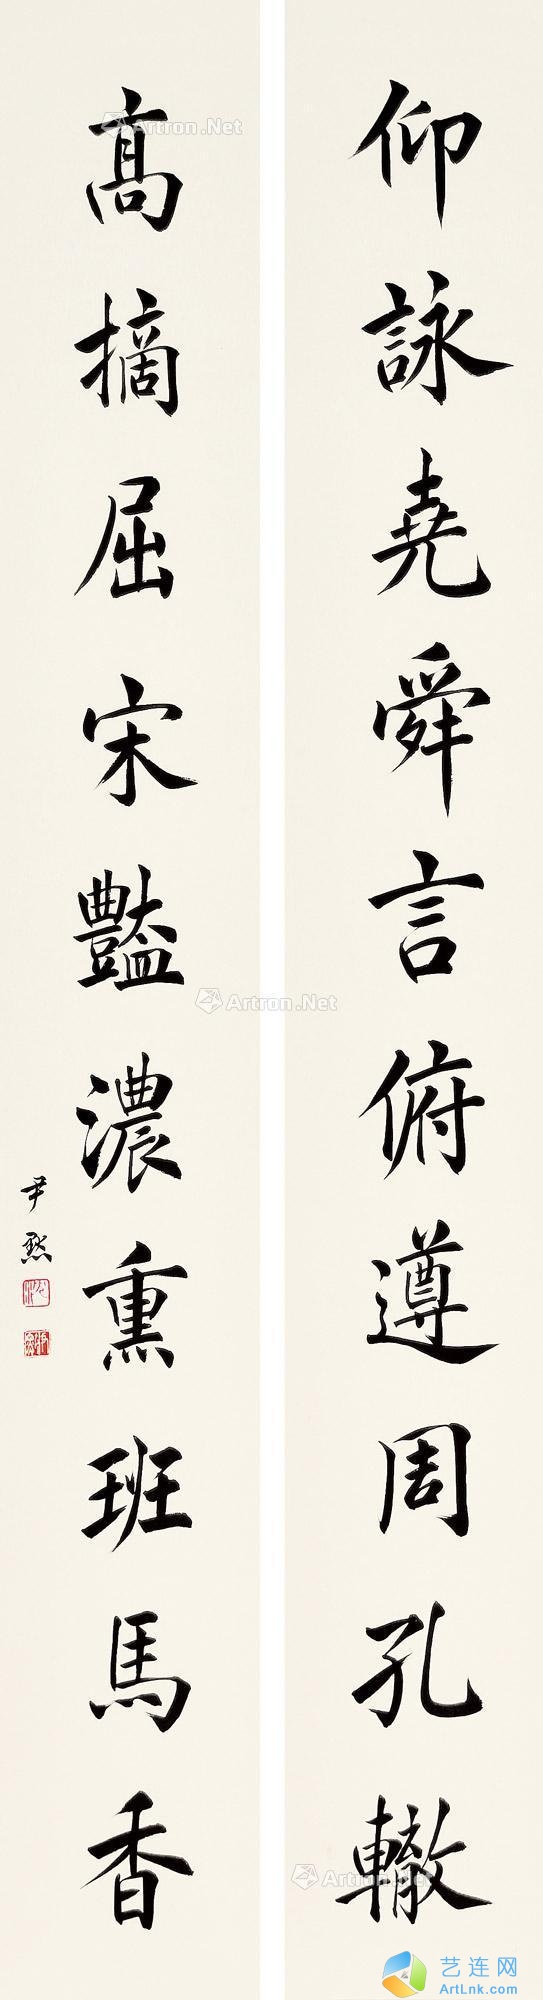 仰詠堯舜言俯遵周孔轍
高摘屈宋豔濃熏班馬香
尹默
Artron.Net
Artron.Net
Artron.Net
Artron.Net
艺连网
ArtLnk.com